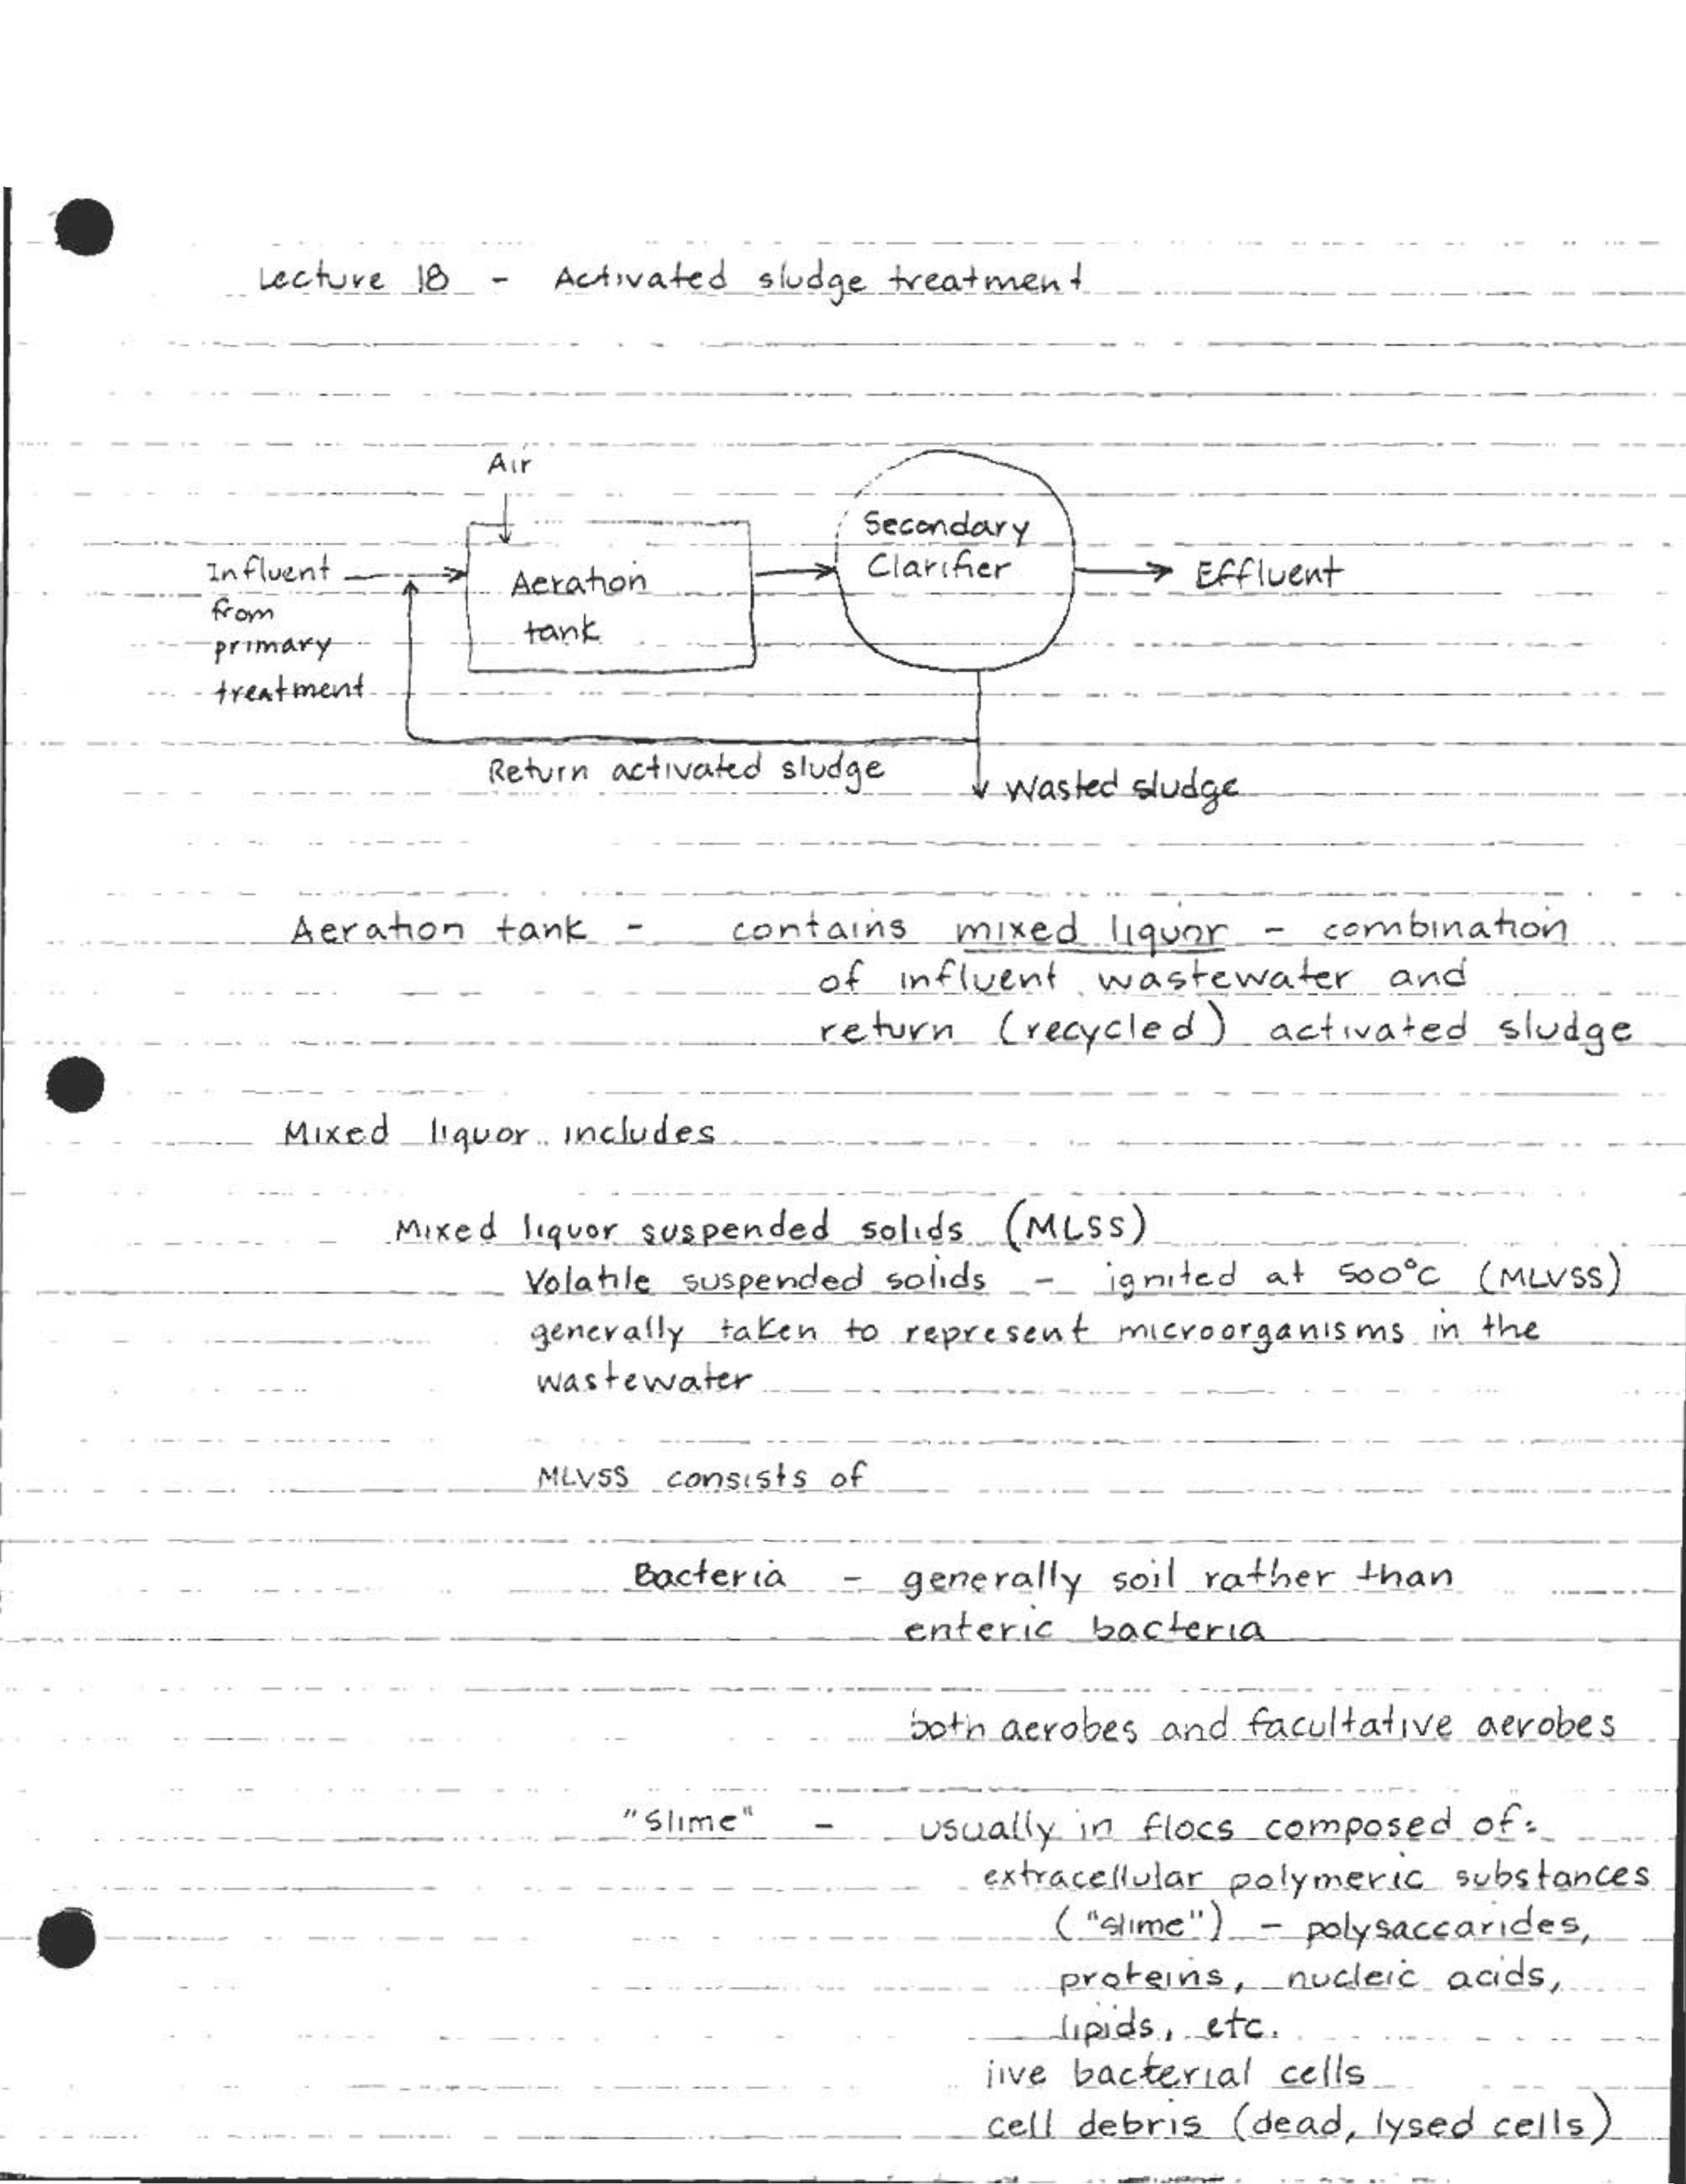 Lecture 18 - Activated sludge treatment
Air
Secondary
Clarifier
Influent
from
primary
treatment
Aeration
tank
Effluent
Return activated sludge
Wasted sludge
Aeration tank - contains mixed liquor - combination
of influent wastewater and
return (recycled) activated sludge
Mixed liquor includes
Mixed liquor suspended solids (MLSS)
Volatile suspended solids - ignited at 500°C (MLVSS)
generally taken to represent microorganisms in the
wastewater
MLVSS consists of
Bacteria - generally soil rather than
enteric bacteria
both aerobes and facultative aerobes
"Slime" - usually in flocs composed of:
extracellular polymeric substances
("slime") - polysaccarides,
proteins, nucleic acids,
lipids, etc.
live bacterial cells
cell debris (dead, lysed cells)